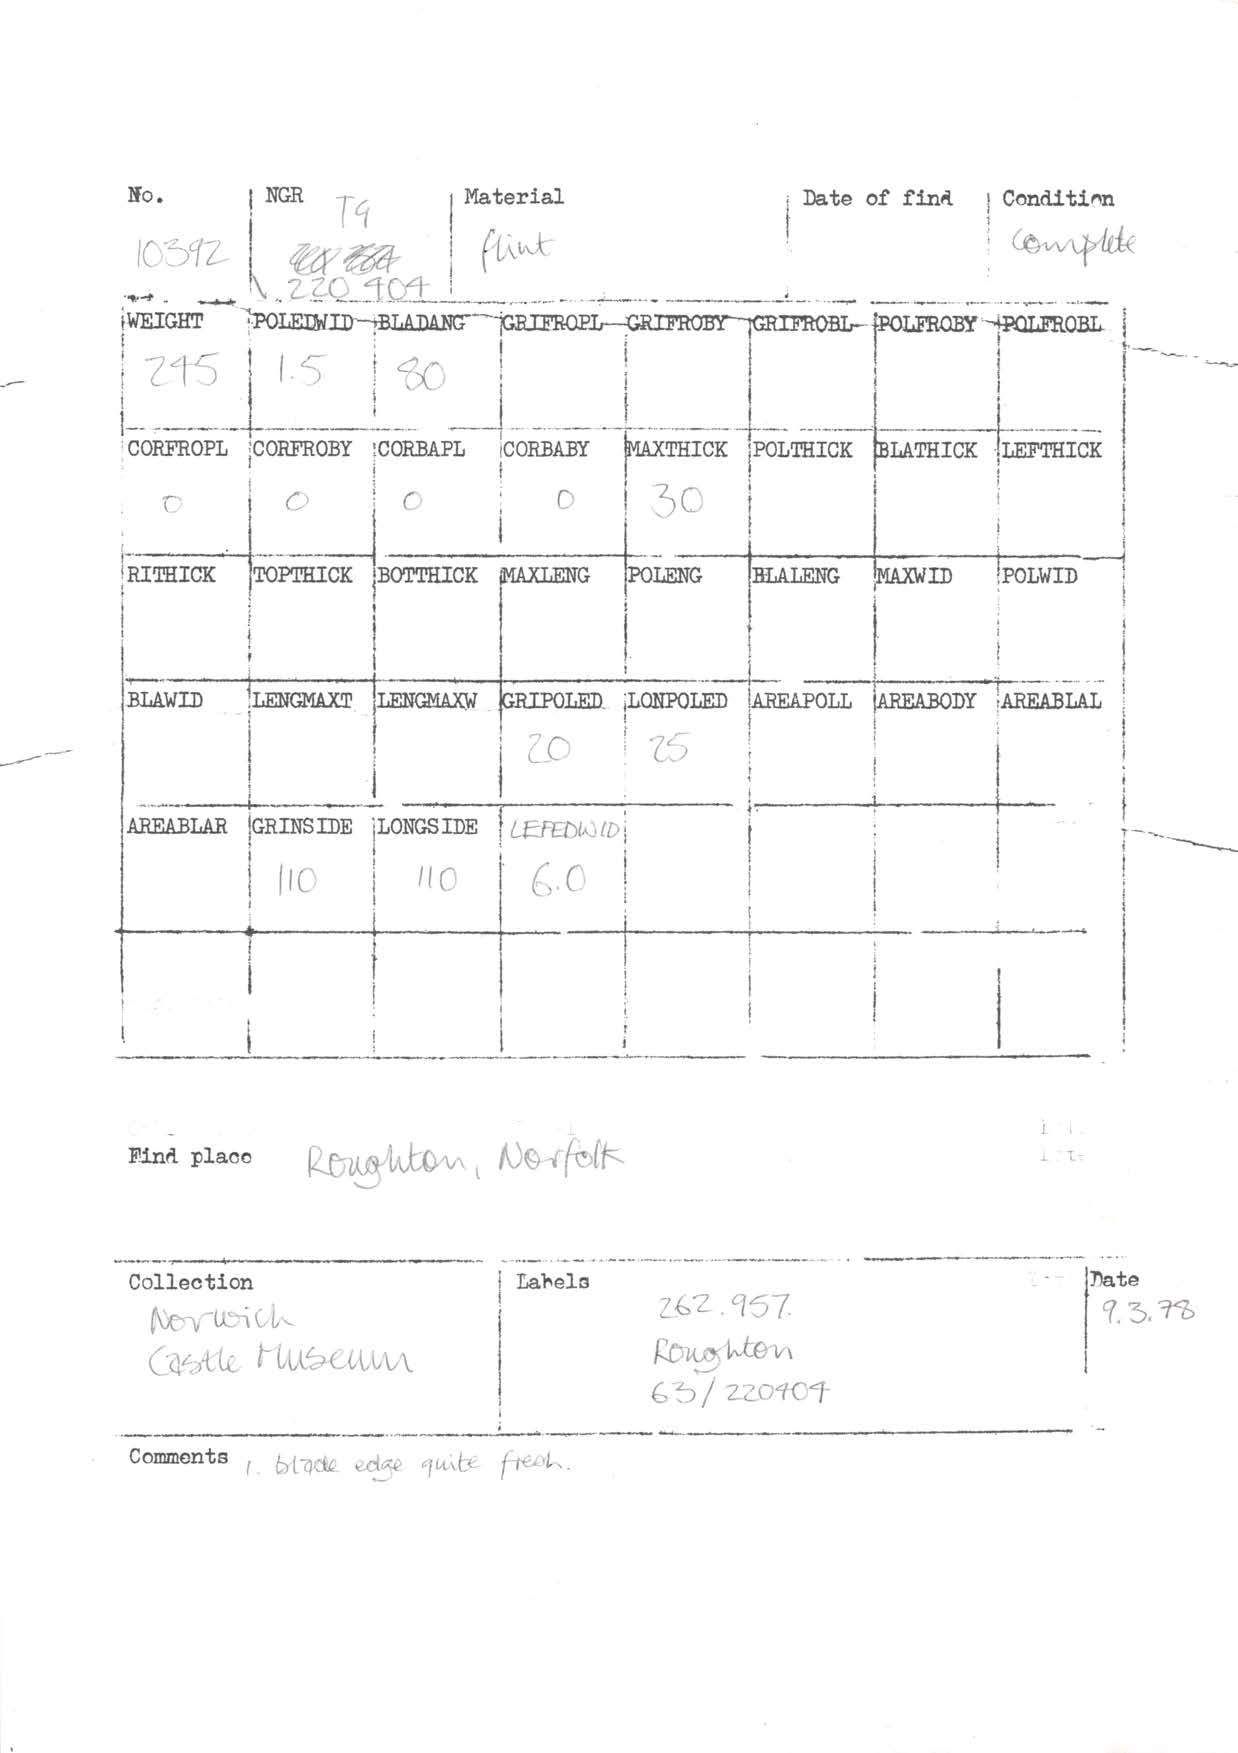 No. NGR Material Date of find Condition
10392 TG flint complete
220 404
WEIGHT POLEDWID BLADANG GRIFROPL GRIFROBY GRIFROBL POLFROBY POLFROBL
245 1.5 80
CORFROPL CORFROBY CORBAPL CORBABY MAXTHICK POLTHICK BLATHICK LEFTHICK
0 0 0 0 30
RITHICK TOPTHICK BOTTHICK MAXLENG POLENG BLALENG MAXWID POLWID
BLAWID LENGMAXT LENGMAXW GRIPOLED LONPOLED AREAPOLL AREABODY AREABLAL
20 25
AREABLAR GRINSIDE LONGSIDE LEFEDWID
110 110 6.0
Find place Roughton, Norfolk
Collection Labels Date
Norwich 262.957. 9.3.78
Castle Museum Roughton
63/220404
Comments 1. blade edge quite fresh.